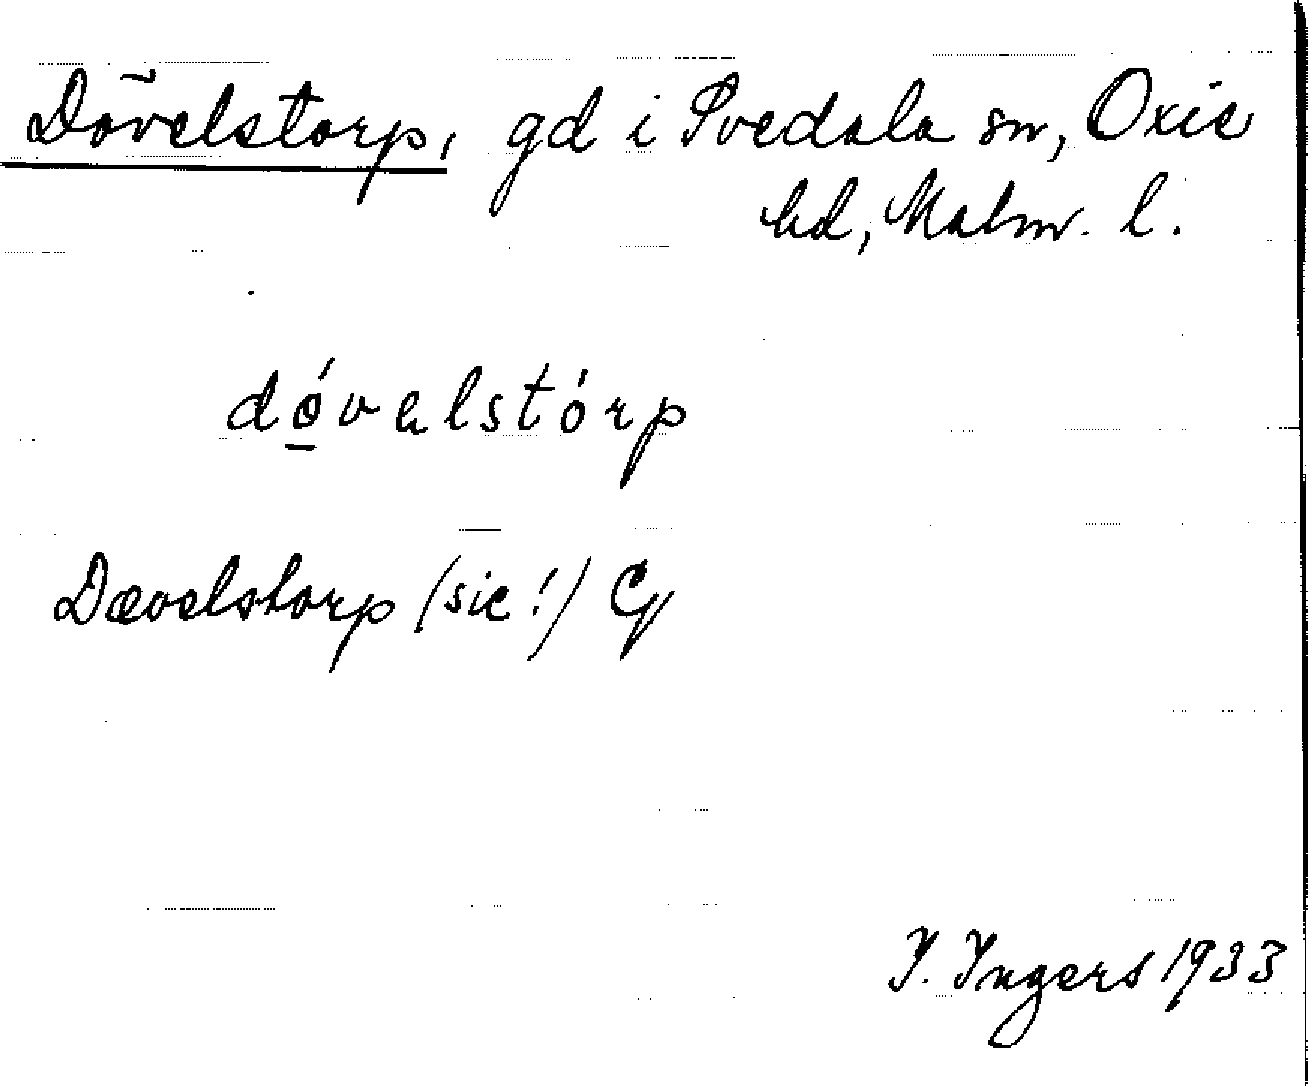 Dövelstorp, gd i Svedala sn, Oxie
hd, Malm. l.
dǿ̱vəlstórp
Dævelstorp (sic!) Cg
I. Ingers 1933